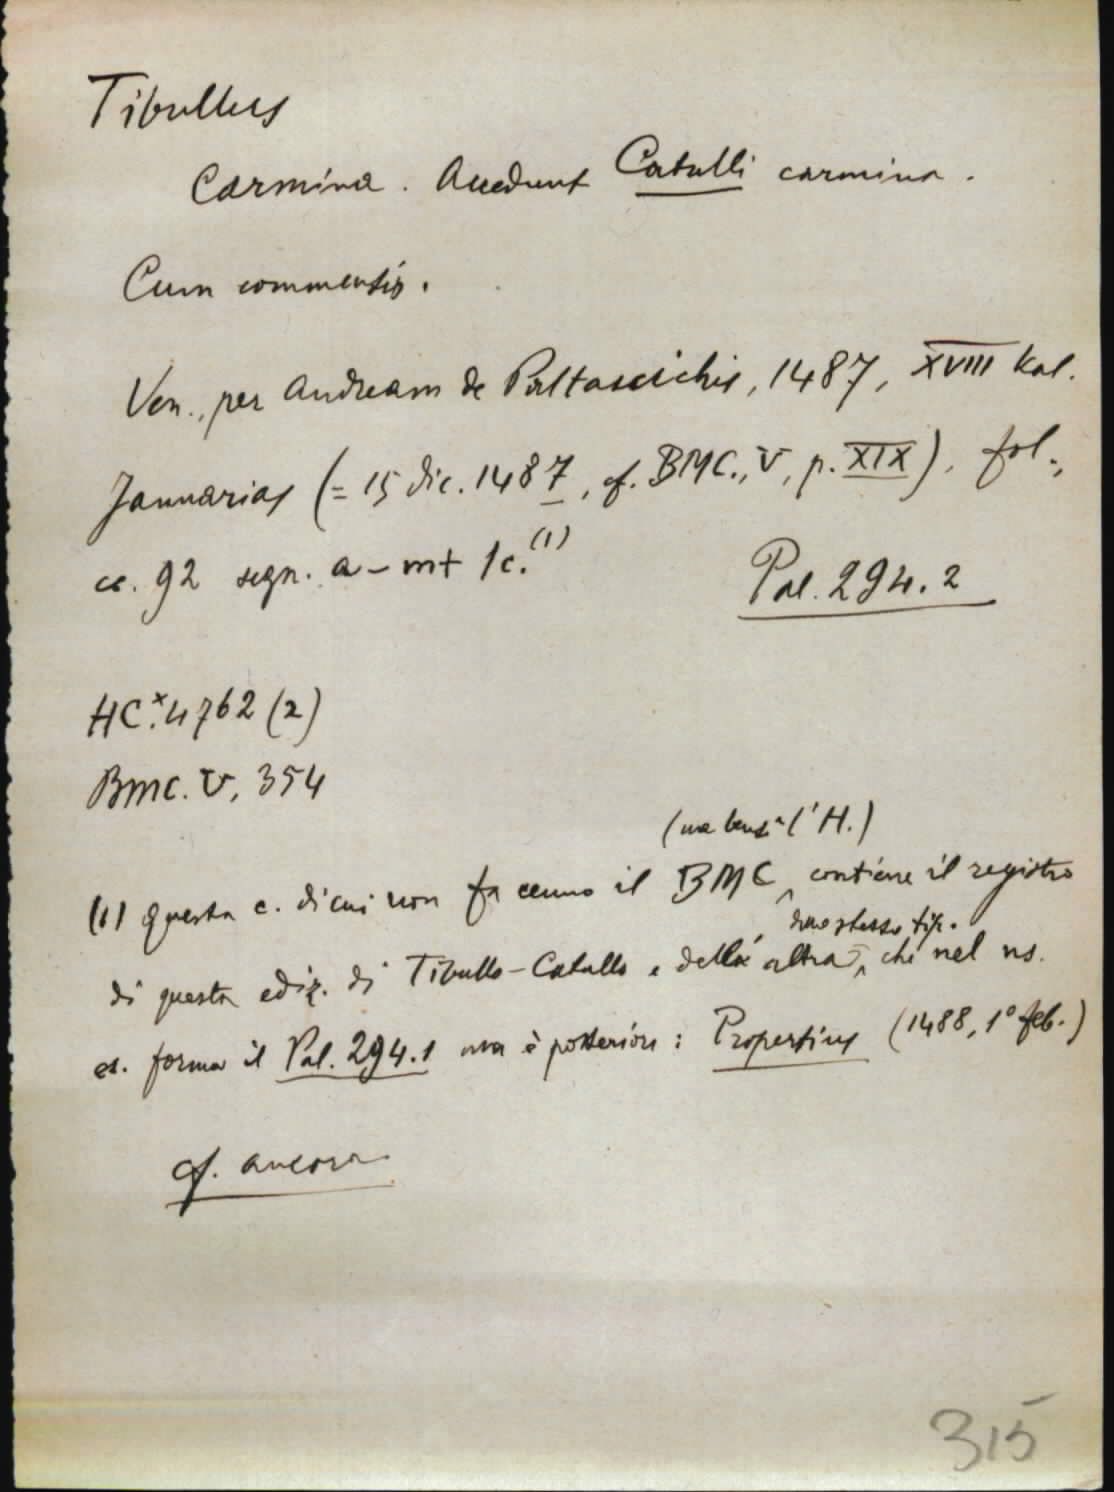 Tibullus
Carmina. Accedunt Catulli carmina.
Cum commentis.
Ven., per Andream de Paltascichis, 1487, XVIII kal.
Januarias (= 15 dic. 1487, cf. BMC., V, p. XIX), fol.,
cc. 92 segn. a-m + 1c.(1)
Pal. 294.2
HC.* 4762 (2)
BMC. V, 354
(ma bensì l'H.)
(1) Questa c. di cui non fa cenno il BMC ^ contiene il registro
dello stesso tip.
di questa ediz. di Tibullo-Catullo e della altra, ^ che nel ns.
es. forma il Pal. 294.1 ma è posteriore: Propertius (1488, 1° feb.)
cf. ancora
315